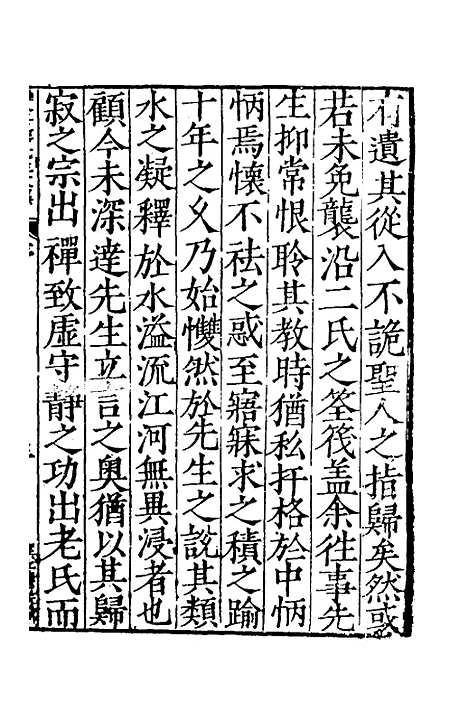 有遺其從入不詭聖人之指歸矣然或
若未免襲沿二氏之筌筏盖余徃事先
生抑常恨聆其教時猶私扞格於中怲
怲焉懷不祛之惑至寤寐求之積之踰
十年之乆乃始戄然於先生之説其類
水之凝釋於水溢流江河無異浸者也
顧今未深達先生立言之奥猶以其歸
寂之宗出禪致虛守靜之功出老氏而